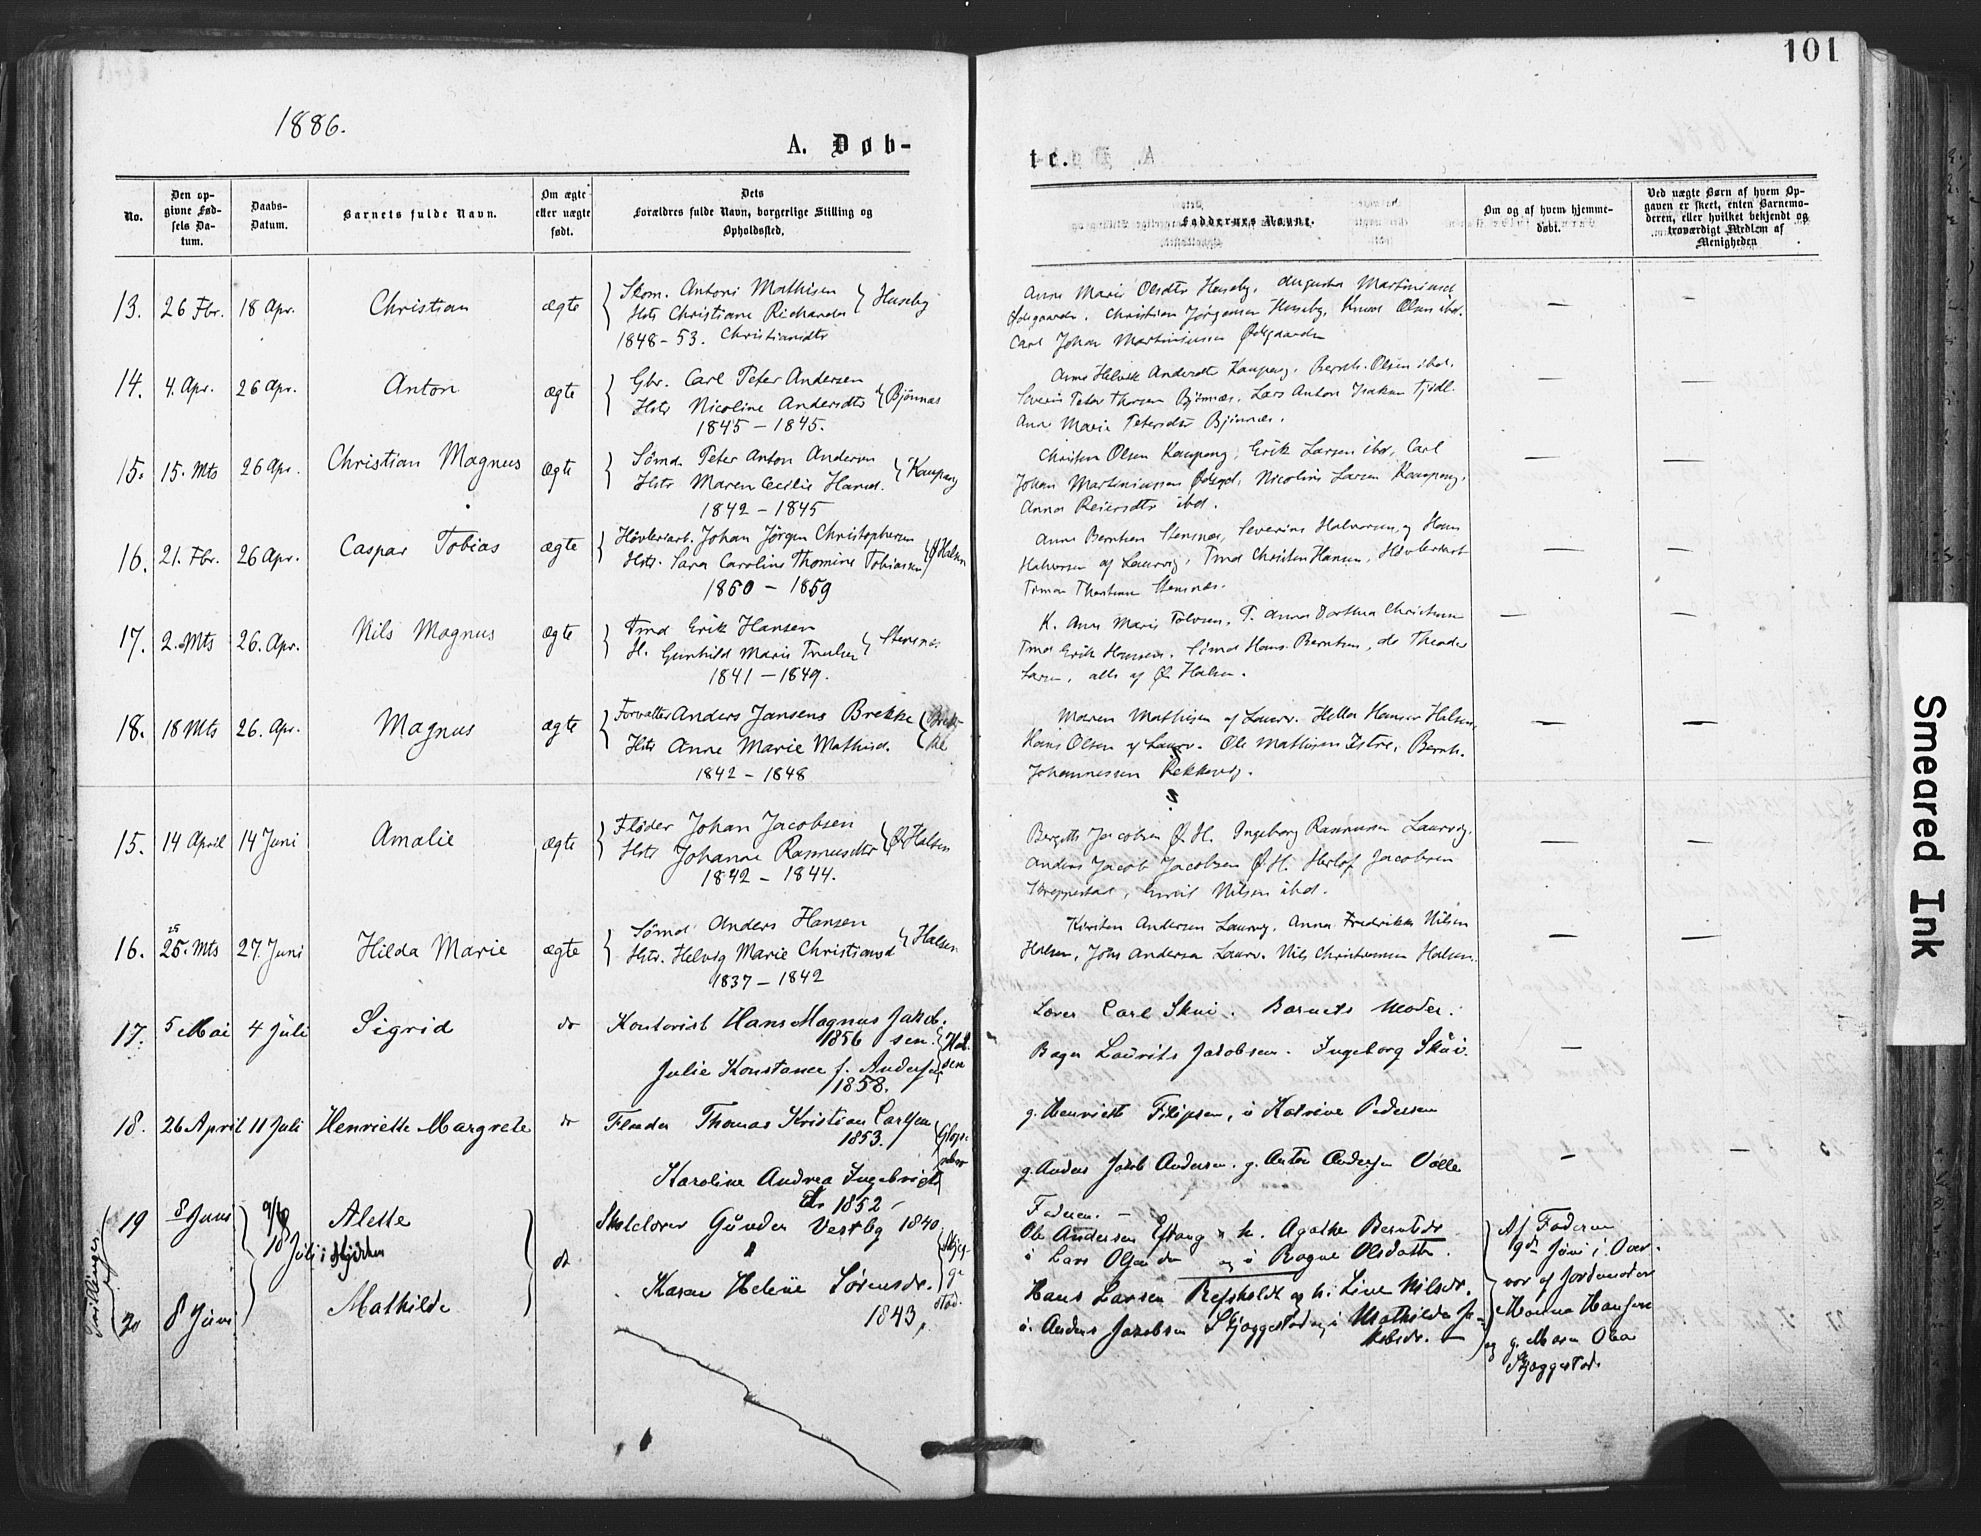 101
1886.
A. Døb-
te.
No.
Den op-
givne Fød-
sels Da-
tum.
Daabs-
Datum.
Barnets fulde Navn.
Om ægte
eller uægte
født.
Dets
Forældres fulde Navn, borgerlige Stilling og
Opholdssted.
Faddernes Navne.
Om og af hvem hjemme-
døbt.
Ved uægte Børn af hvem Op-
gaven er skeet, enten Barnemo-
deren, eller hvilket bekjendt og
troværdigt Medlem af
Menigheden
13. 26 Fbr. 18 Apr. Christian ægte
Skom. Antoni Mathisen
Hstr Christiane Richarda Huseby
1848-53. Christiansdtr
Anne Marie Olsdtr Huseby, Augusta Martiniusd
Ødegaarden. Christian Jørgensen Huseby, Knud Olsen ibd.
Carl Johan Martiniussen Ødegaarden
14. 4. Apr. 26 Apr. Anton ægte
Gbr. Carl Peter Andersen
Hstr Nicoline Andersdtr Bjønnæs
1845-1845.
Anne Helvik Andersdtr Kaupang. Bernh. Olsen ibd.
Severin Peter Thorsen Bjønnæs. Lars Anton Isaksen
Anne Marie Petersdtr Bjønnæs.
15. 15. Mts 26 Apr. Christian Magnus ægte
Sømd. Peter Anton Andersen
Hstr Maren Cecilie Hansd. Kaupang
1842-1845
Christen Olsen Kaupang, Erik Larsen ibd, Carl
Johan Martiniussen Ødegd, Nicoline Larsen Kaupang,
Anna Reiersdtr ibd.
16. 21. Fbr. 26 Apr. Caspar Tobias ægte
Høvleriarb. Johan Jørgen Christophersen
Hstr. Sara Caroline Thomine Tobiassen Ø Halsen
1860-1859
Anne Berntsen Stensnæs, Severine Halvorsen, og Hans
Halvorsen af Laurvig, Tmd Christen Hansen, Høvleriarb
Thorsen Stensnæs.
17. 2. Mts 26. Apr. Nils Magnus ægte
Tmd Erik Hansen
H. Gunhild Marie Truelsen Stensnæs
1841-1849.
K. Anne Marie Tolvsen, P. Anne Dorthea Christensen
Tmd Erik Hansen. Sømd Hans Berntsen, do Theodor
Larsen, alle af Ø. Halsen.
18. 18 Mts 26. Apr. Magnus ægte
Forvalter Anders Jansens Brekke
Hstr Anne Marie Mathisd. Brek-
ke
1842-1848
Maren Mathisen af Laurv. Hella Hansen Halsen,
Hans Olsen af Laurv. Ole Mathisen Istre, Bernh.
Johannessen Rekkevig.
?
15. 14 April 14 Juni Amalie ægte
Fløder Johan Jacobsen
Hstr Johanne Rasmusdtr Ø Halsen
1842-1844.
Bergitte Jacobsen Ø.H. Ingeborg Rasmussen Laurvig,
Anders Jacob Jacobsen Ø.H. Herlof Jacobsen
Emil Nilsen ibd.
25
16. 25. Mts 27. Juni Hilda Marie ægte
Sømd Anders Hansen
Hstr. Helvig Marie Christiansd Halsen
1837-1842
Kirsten Andersen Laurvig, Anna Fredrikke Nilsen
Halsen, Jøns Andersen Laurv. Nils Christiansen Halsen.
17. 5 Mai 4 Juli Sigrid do
Kontorist Hans Magnus Jakob-
1856 sen. Hal-
sen
Julie Konstance f. Andersen
1858.
Carl Skui. Barnets Moder.
Bager Laurits Jakobsen. Ingeborg Skui.
18. 26 April 11 Juli Henriette Margrete do
Fløder Thomas Kristian Carlsen
1853.
Karoline Andrea Ingebrigts
dtr 1852
g. Henriette Filipsen, i Katrine Pedersen
g. Anders Jakob Andersen. g. Anton Andersen Valle
Faderen.
Tvillinger
19 8 Juni 9/6 Alette
18 Juli i Kjirken do
20 8 Juni Mathilde
Skolelærer Gunder Vestby 1840.
Karen Helene Sørensdr.
1843,
Skjeg-
ge
stad.
Ole Andersen Eftang & k. Agathe Berntdr.
i Lars Olsen og i Ragne Olsdatter.
Hans Larsen Refsholdt og k. Line Nilsdr.
i. Anders Jakobsen Skjeggestad og i Mathilde Ja-
kobsdr.
Af Faderen
9de Juni i Over-
vær af Jordemoder
Hanna Hansen
og g. Maren Olea
Skjeggestad.
Smeared Ink